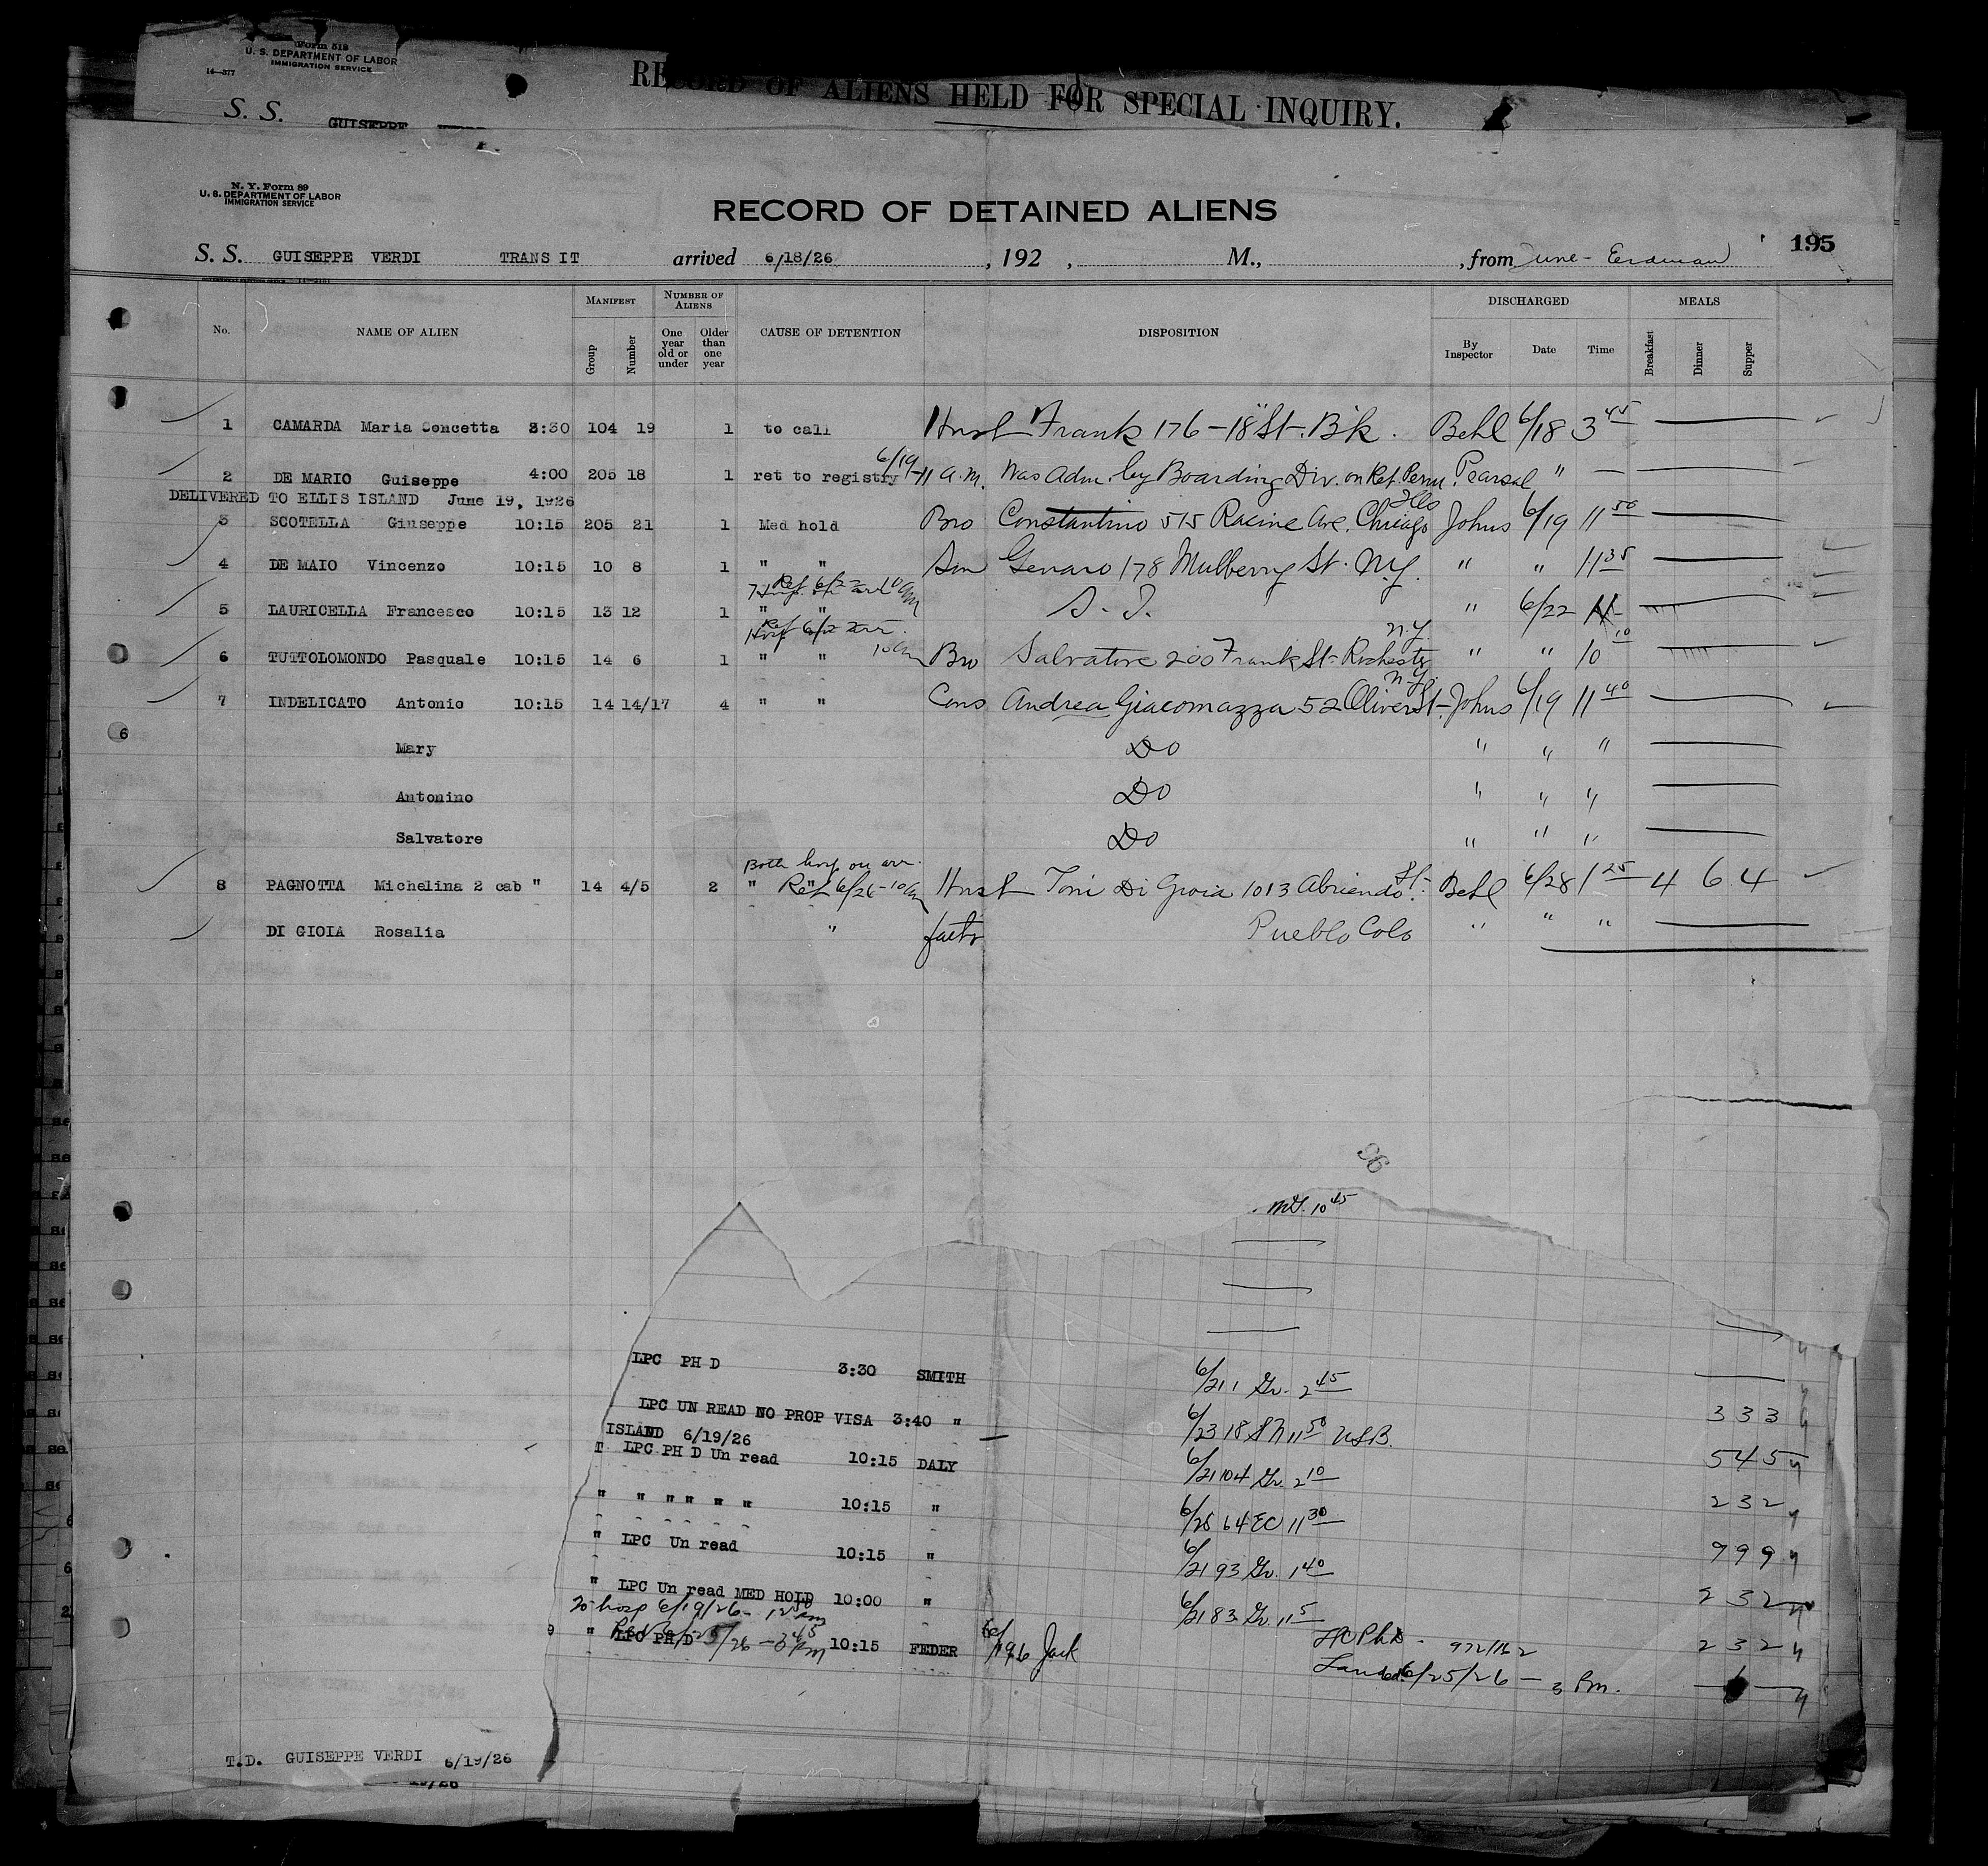 Form 518
U. S. DEPARTMENT OF LABOR
IMMIGRATION SERVICE
14—377
RECORD OF ALIENS HELD FOR SPECIAL INQUIRY.
S. S. GUISEPPE
N. Y. Form 89
U. S. DEPARTMENT OF LABOR
IMMIGRATION SERVICE
RECORD OF DETAINED ALIENS
195
S. S. GUISEPPE VERDI TRANSIT arrived 6/18/26 , 192 , M., , from Erdman
No. NAME OF ALIEN MANIFEST Group Number NUMBER OF ALIENS One year old or under Older than one year CAUSE OF DETENTION DISPOSITION DISCHARGED By Inspector Date Time MEALS Breakfast Dinner Supper
1 CAMARDA Maria Concetta 3:30 104 19 1 to call Husb Frank 176-18" St. Bk. Behl 6/18 3 45
2 DE MARIO Guiseppe 4:00 205 18 1 ret to registry 6/19-11 a.m. Was Adm. by Boarding Div. on Ret. Perm. Pearsal "
DELIVERED TO ELLIS ISLAND June 19, 1926
3 SCOTELLA Giuseppe 10:15 205 21 1 Med hold Bro Constantino 515 Racine Ave. Chicago Ills Johns 6/19 11 50
4 DE MAIO Vincenzo 10:15 10 8 1 " " Son Genaro 178 Mulberry St. N.Y. " " 11 35
Ref 6/22 10 am
5 LAURICELLA Francesco 10:15 13 12 1 " " S. I. " 6/22
6 TUTTOLOMONDO Pasquale 10:15 14 6 1 " " 10 am Bro Salvatore 200 Frank St- Rochester N.Y. " " 10 10
7 INDELICATO Antonio 10:15 14 14/17 4 " " Cons Andrea Giacomazza 52 Oliver St- N.Y. Johns 6/19 11 40
Mary Do " " "
Antonino Do " " "
Salvatore Do " " "
Both hosp on arr.
8 PAGNOTTA Michelina 2 cab " 14 4/5 2 " Ref 6/26-10 am Husb Toni Di Gioia 1013 Abriendo St. Behl 6/28 1 25 4 6 4
DI GIOIA Rosalia " fath Pueblo Colo " " "
96
10 45
LPC PH D 3:30 SMITH 6/21 1 Gv. 2 45
LPC UN READ NO PROP VISA 3:40 " 6/23 18 11 50 USB. 3 3 3
ISLAND 6/19/26
T LPC PH D Un read 10:15 DALY 6/21 104 Gv. 2 10 5 4 5
" " " " " " 10:15 " 6/25 64 EC 11 30 2 3 2
" LPC Un read 10:15 " 6/21 93 Gv. 1 40 9 9 9
" LPC Un read MED HOLD 10:00 " 6/21 83 Gv. 11 5 2 3 2
To hosp 6/19/26-
9 " LPC PH D 10:15 FEDER Jack 972/162 2 3 2
Landed 6/25/26 — 3 Pm.
T.D. GUISEPPE VERDI 6/19/26